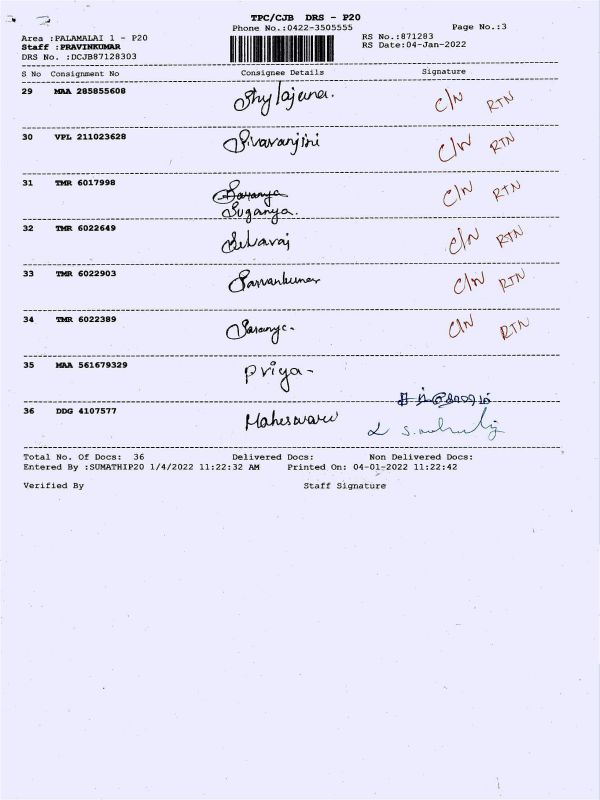 TPC/CJB DRS - P20
Phone No.:0422-3505555
Page No.:3
Area :PALAMALAI 1 - P20
RS No.:871283
Staff :PRAVINKUMAR
RS Date:04-Jan-2022
DRS No. :DCJB87128303
S No Consignment No Consignee Details Signature
29 MAA 285855608 Shylajana. C/N RTN
30 VPL 211023628 Sivaranjini C/N RTN
31 TMR 6017998 Saranya C/N RTN
Suganya.
32 TMR 6022649 Selvaraj C/N RTN
33 TMR 6022903 Saravankumar C/N RTN
34 TMR 6022389 Saranya. C/N RTN
35 MAA 561679329 Priya-
36 DDG 4107577 Maheswari
Total No. Of Docs: 36 Delivered Docs: Non Delivered Docs:
Entered By :SUMATHIP20 1/4/2022 11:22:32 AM Printed On: 04-01-2022 11:22:42
Verified By Staff Signature